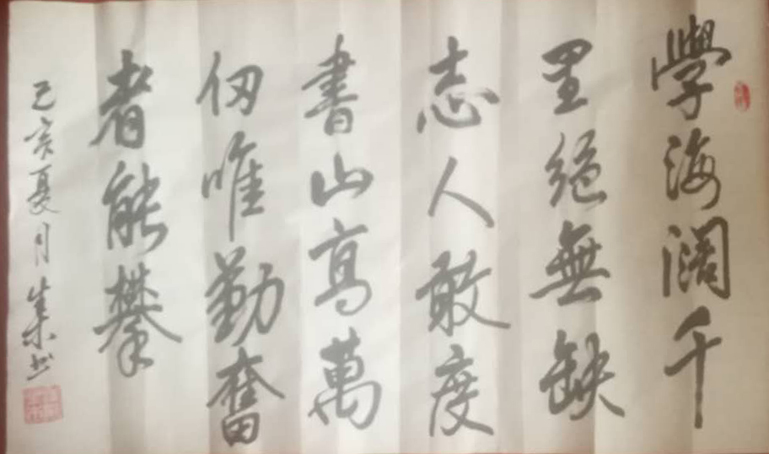 學海阔千
里絕無缺
志人敢度
書山高萬
仞唯勤奮
者能攀
己亥夏月生來书